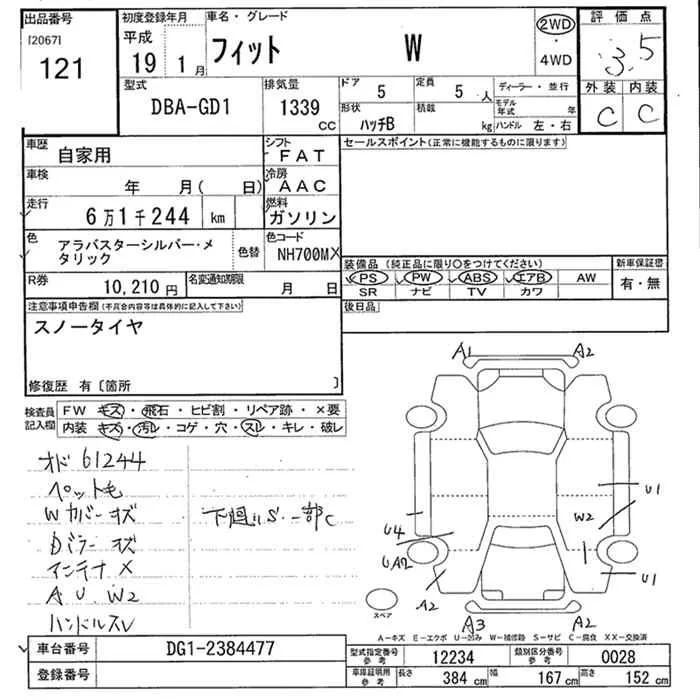 出品番号
[2067]
121
初度登録年月
平成
19 1月
車名・グレード
フィット W
2WD
・
4WD
評価点
3.5
外装 内装
C C
型式
DBA-GD1
排気量
1339
CC
ドア 5
定員 5人
形状
ハッチB
積載
kg
ディーラー・並行
モデル年式 年
ハンドル 左・右
車歴
自家用
シフト
FAT
セールスポイント(正常に機能するものに限ります)
車検
年 月( 日)
冷房
AAC
走行
6万1千244 km
燃料
ガソリン
色
アラバスターシルバー・メタリック
色替
色コード
NH700MX
装備品(純正品に限り○をつけてください)
PS PW ABS エアB AW
SR ナビ TV カワ
新車保証書
有・無
R券
10,210円
名変通知期限
月 日
後日品
注意事項申告欄(不具合内容等は具体的に記入して下さい)
スノータイヤ
修復歴 有〔箇所 〕
検査員
記入欄
FW キズ・飛石・ヒビ割・リペア跡・×要
内装 キズ・汚レ・コゲ・穴・スレ・キレ・破レ
オド 61244
ペット毛
Wカバーキズ
Bドアーキズ
アンテナ×
A U W2
ハンドルスレ
下廻りS 一部C
A1 A2
U1
W2
U4
UA2
U1
A2
A3 A2
スペア
A−キズ E−エクボ U−凹み W−補修跡 S−サビ C−腐食 XX−交換済
車台番号
DG1-2384477
登録番号
型式指定番号
参考
12234
類別区分番号
参考
0028
車庫証明用
参考
長さ 384 cm 幅 167 cm 高さ 152 cm